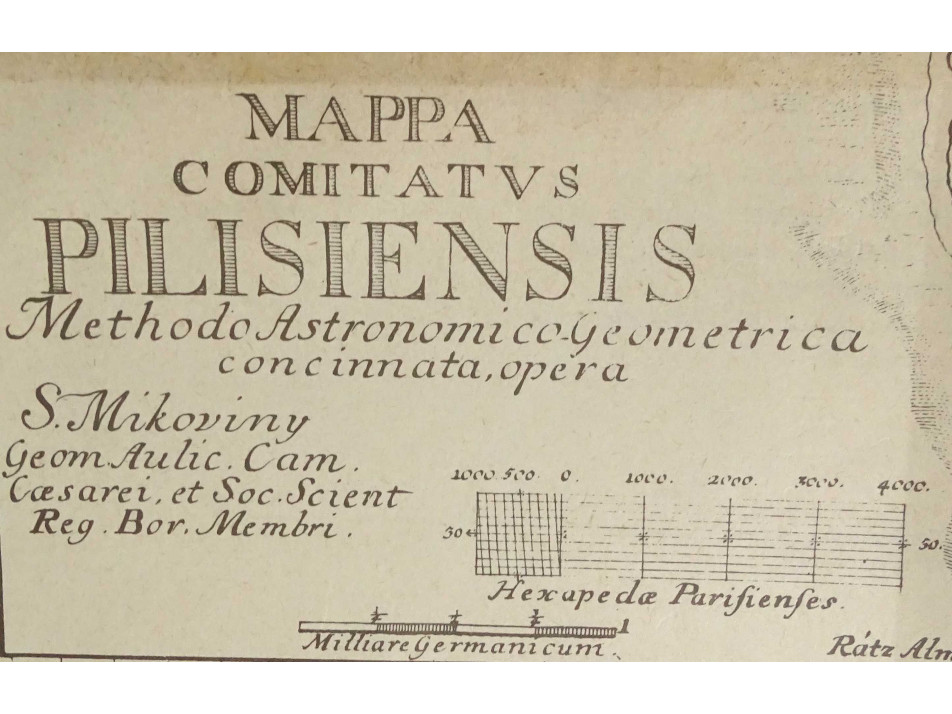 MAPPA
COMITATVS
PILISIENSIS
Methodo Astronomico-Geometrica
concinnata, opera
S. Mikoviny
Geom. Aulic. Cam.
Cæsarei, et Soc. Scient
Reg. Bor. Membri.
1000. 500. 0. 1000. 2000. 3000. 4000.
50 50.
Hexapedæ Pariſienſes.
1
Milliare Germanicum.
Rátz Alm